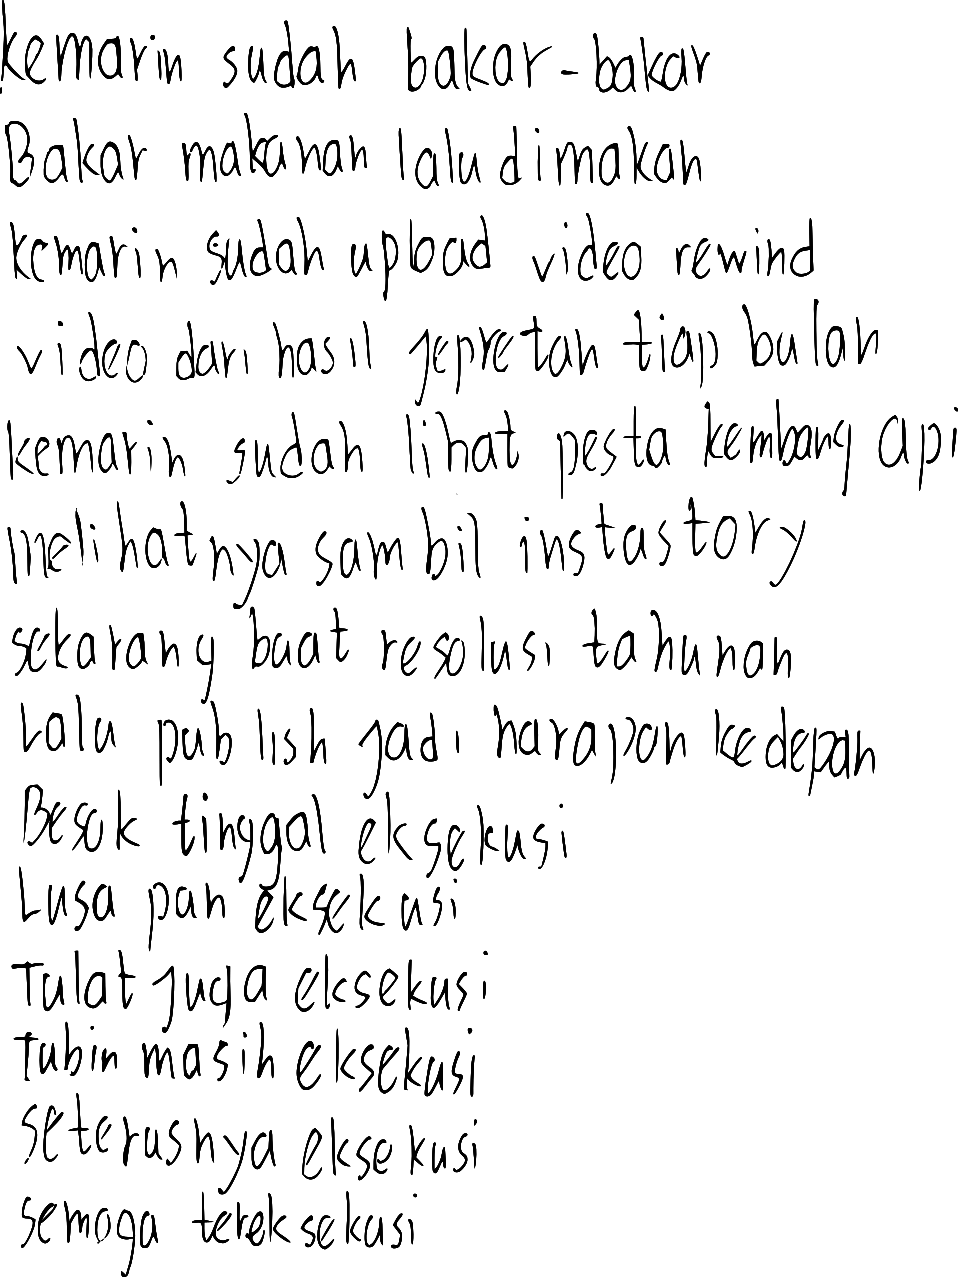 kemarin sudah bakar-bakar
Bakar makanan lalu dimakan
kemarin sudah upload video rewind
video dari hasil jepretan tiap bulan
kemarin sudah lihat pesta kembang api
melihatnya sambil instastory
sekarang buat resolusi tahunan
Lalu publish jadi harapan kedepan
Besok tinggal eksekusi
Lusa pan eksekusi
Tulat juga eksekusi
Tubin masih eksekusi
seterusnya eksekusi
semoga tereksekusi